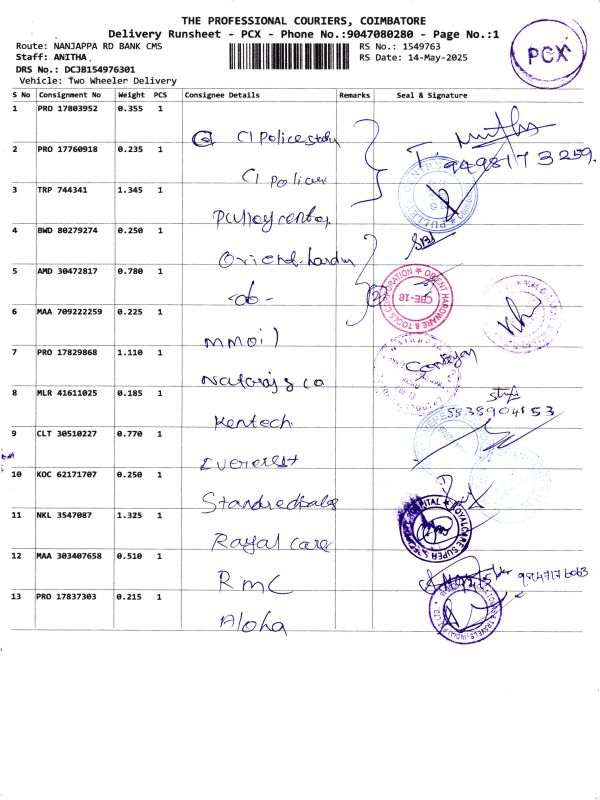 THE PROFESSIONAL COURIERS, COIMBATORE
Delivery Runsheet - PCX - Phone No.:9047080280 - Page No.:1
Route: NANJAPPA RD BANK CMS
Staff: ANITHA
DRS No.: DCJB154976301
Vehicle: Two Wheeler Delivery
RS No.: 1549763
RS Date: 14-May-2025
PCX
S No Consignment No Weight PCS Consignee Details Remarks Seal & Signature
1 PRO 17803952 0.355 1 C1 Police
2 PRO 17760918 0.235 1 C1 Police 9498173259
3 TRP 744341 1.345 1 Pulley center
4 BWD 80279274 0.250 1 Orient
5 AMD 30472817 0.780 1 -do- 2
ORIENT HARDWARE & TOOLS CORPORATION
CBE-18
6 MAA 709222259 0.225 1 mmoil
7 PRO 17829868 1.110 1 Nataraj & co
8 MLR 41611025 0.185 1 Kentech
9 CLT 30510227 0.770 1 Everest
10 KOC 62171707 0.250 1
11 NKL 3547087 1.325 1 Royal care
12 MAA 303407658 0.510 1 RMC
13 PRO 17837303 0.215 1 Aloha